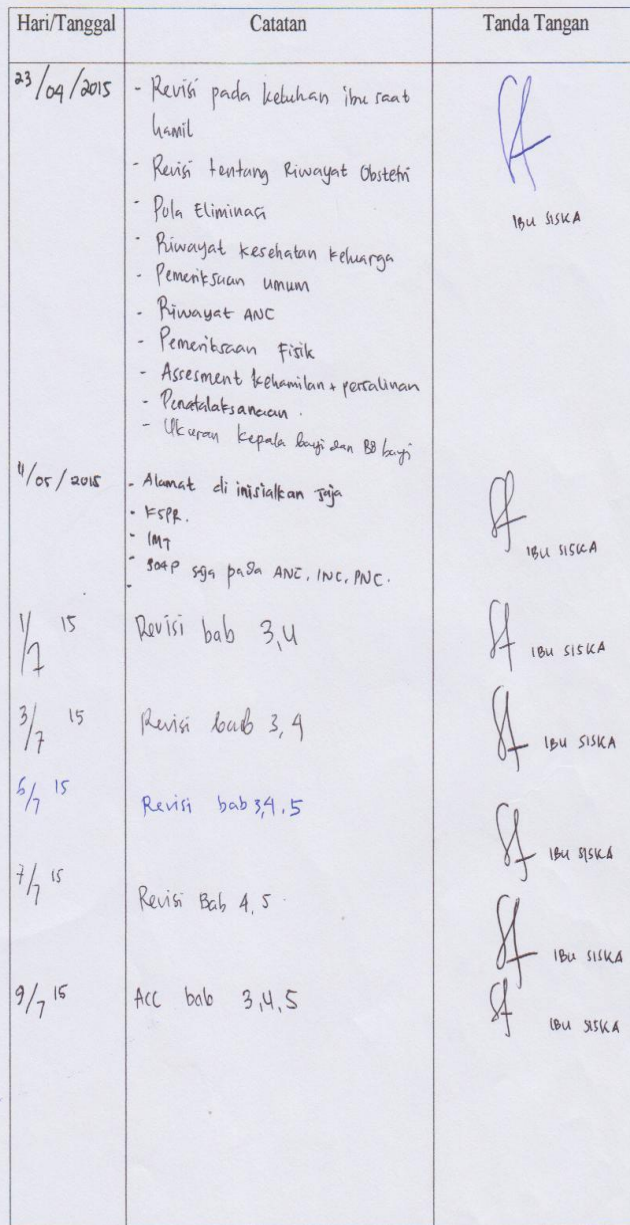 Hari/Tanggal Catatan Tanda Tangan
23/04/2015 - Revisi pada keluhan ibu saat
hamil
- Revisi tentang Riwayat Obstetri
- Pola Eliminasi
IBU SISKA
- Riwayat kesehatan keluarga
- Pemeriksaan umum
- Riwayat ANC
- Pemeriksaan Fisik
- Assesment kehamilan + persalinan
- Penatalaksanaan.
- Ukuran kepala bayi dan BB bayi
11/05/2015 - Alamat di inisialkan saja
- KSPR.
IBU SISKA
- IMT
- SOAP saja pada ANC, INC, PNC.
-
1/7 15 Revisi bab 3,4 IBU SISKA
3/7 15 Revisi bab 3, 4 IBU SISKA
6/7 15 Revisi bab 3,4,5 IBU SISKA
7/7 15 Revisi Bab 4, 5 IBU SISKA
9/7 15 Acc bab 3,4,5 IBU SISKA